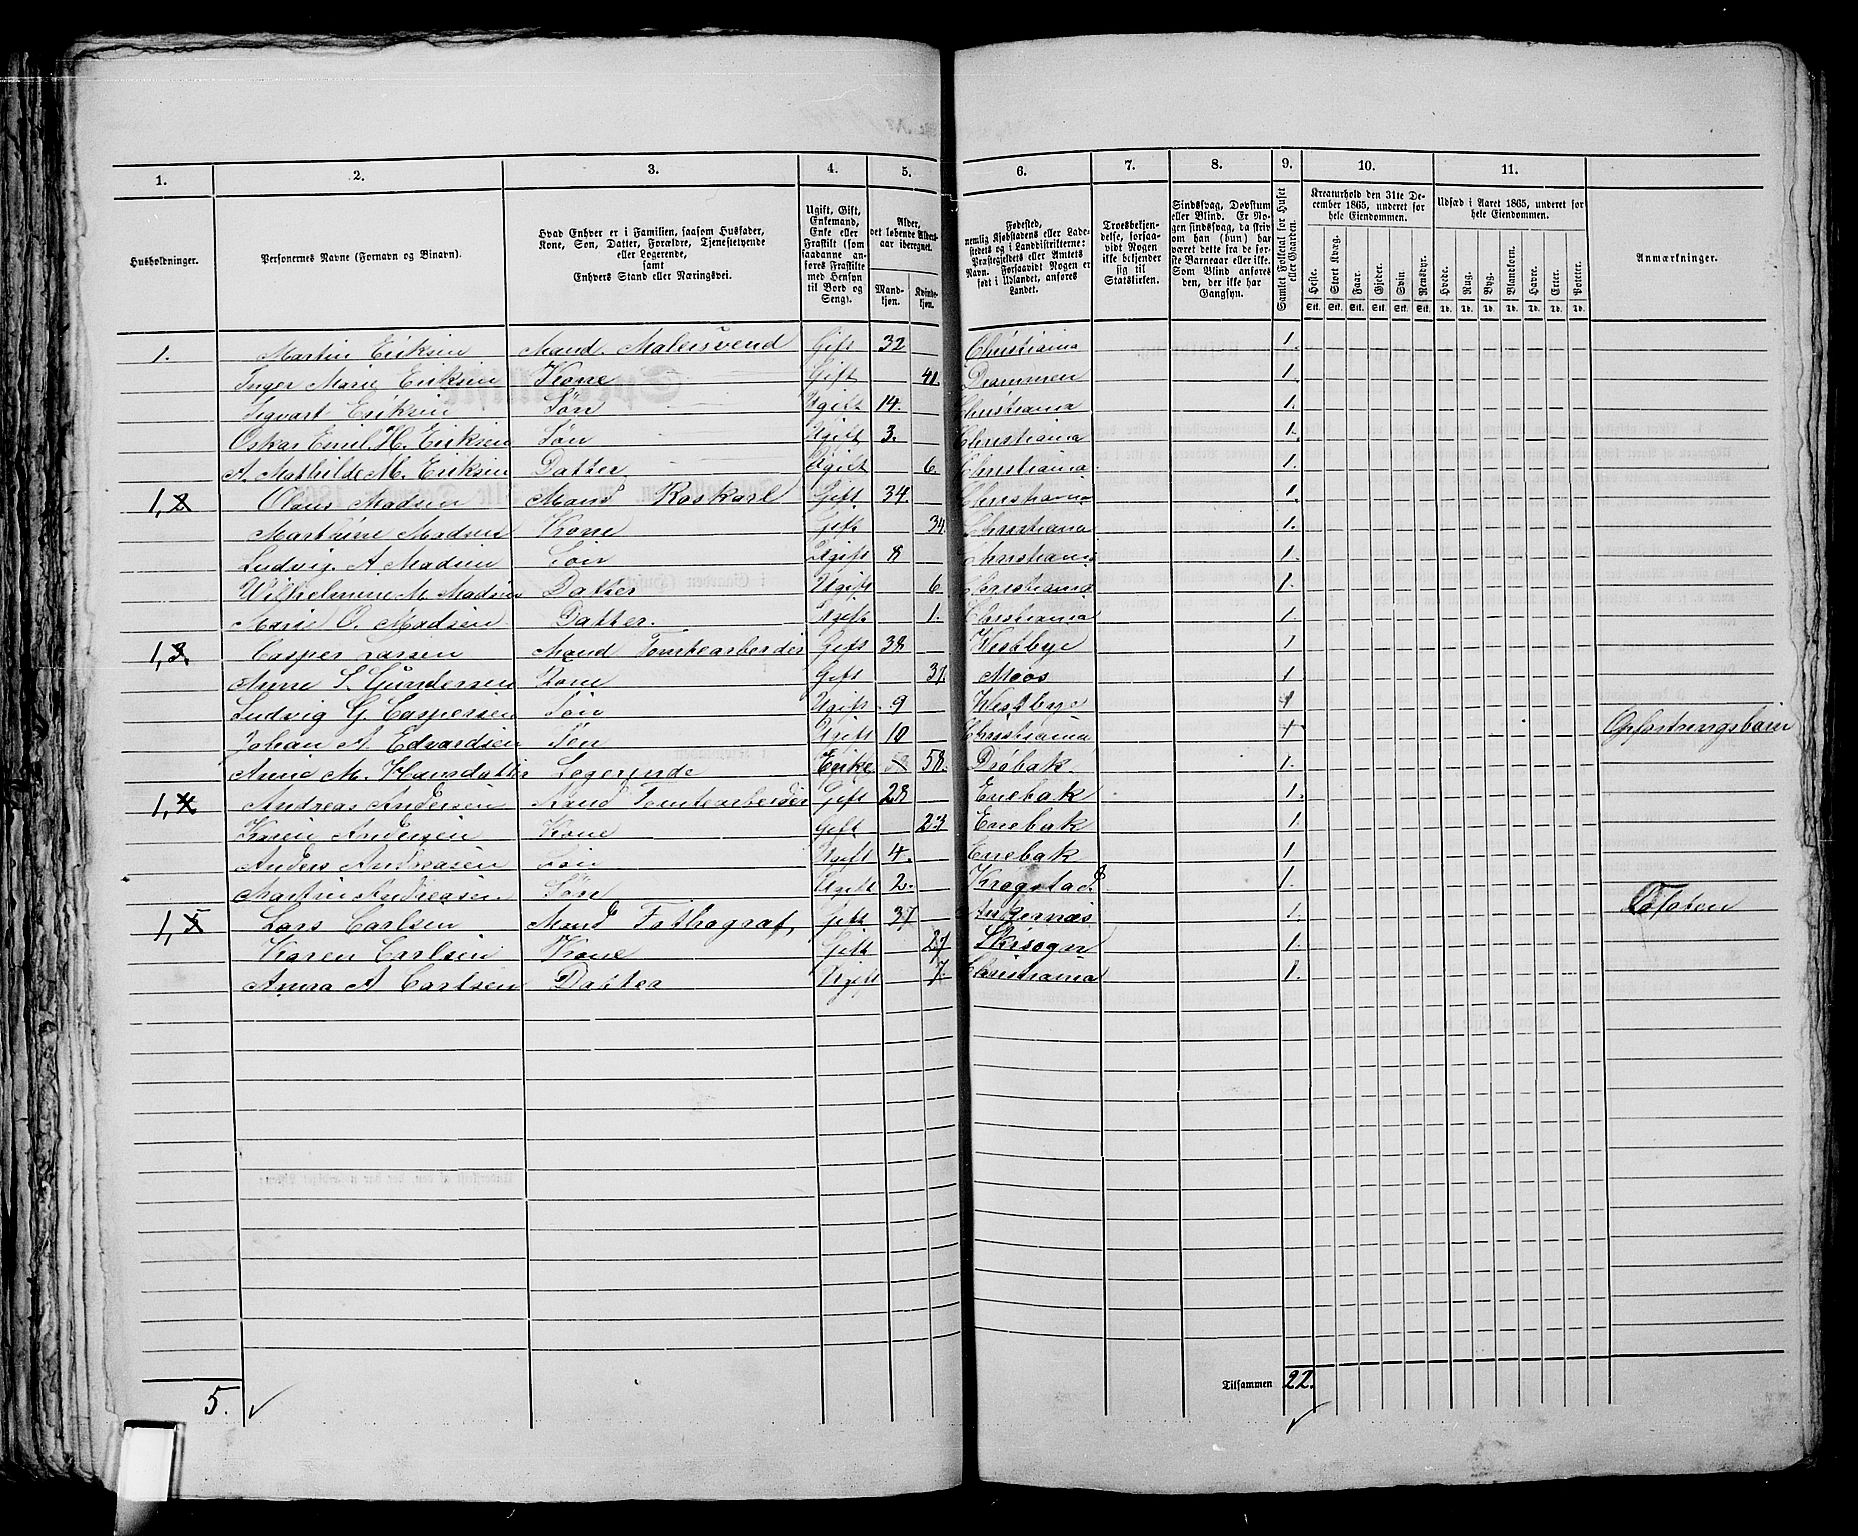 1. 2. 3. 4. 5. 6. 7. 8. 9. 10. 11.
Husholdninger.
Personernes Navne (Fornavn og Binavn).
Hvad Enhver er i Familien, saasom Husfader,
Kone, Søn, Datter, Forældre, Tjenestetyende
eller Logerende,
samt
Enhvers Stand eller Næringsvei.
Ugift, Gift,
Enkemand,
Enke eller
Fraskilt (som
saadanne an-
føres Fraskilte
med Hensyn
til Bord og
Seng).
Alder,
det løbende Alders-
aar iberegnet.
Mand-
kjøn.
Kvinde-
kjøn.
Fødested,
nemlig Kjøbstadens eller Lade-
stedets og i Landdistrikterne:
Præstegjeldets eller Amtets
Navn. Forsaavidt Nogen er
født i Udlandet, anføres
Landet.
Troesbekjen-
delse, forsaa-
vidt Nogen
ikke bekjender
sig til
Statskirken.
Sindssvag, Døvstum
eller Blind. Er No-
gen sindssvag, da skriv
om han (hun) har
været dette fra de før-
ste Barneaar eller ikke.
Som Blind anføres
den, der ikke har
Gangsyn.
Samlet Folketal for Huset
eller Gaarden.
Kreaturhold den 31te De-
cember 1865, underet for
hele Eiendommen.
Heste. Stort Kvæg. Faar. Gjeder. Svin. Rensdyr.
Stk. Stk. Stk. Stk. Stk. Stk.
Udsæd i Aaret 1865, underet for
hele Eiendommen.
Hvede. Rug. Byg. Blandkorn. Havre. Erter. Poteter.
Td. Td. Td. Td. Td. Td. Td.
Anmærkninger.
1. Martin Eriksen Mand. Malersvend Gift 32 Christiania 1.
Inger Marie Eriksen Kone Gift 41. Drammen 1.
Sigvart Eriksen Søn Ugift 14. Christiania 1.
Oskar Emil H. Eriksen Søn Ugift 3. Christiania 1.
A. Mathilde M. Eriksen Datter Ugift 6. Christiania 1.
1, 2 Olaus Madsen Mand Roskarl Gift 34. Christiania 1.
Marthine Madsen Kone Gift 34. Christiania 1.
Ludvig. A Madsen Søn Ugift 8 Christiania 1.
Wilhelmine M Madsen Datter Ugift 6 Christiania 1.
Marie O. Madsen Datter. Ugift 1. Christiania 1.
1, 3. Casper Larsen Mand Tomtearbeider Gift 38 Westbye 1
Anne S. Gundersen Kone Gift 37. Moss 1
Ludvig G. Caspersen Søn Ugift 9 Westbye 1
Johan A. Edvardsen Søn Ugift 10 Christiania 1 Opfostringsbarn
Anne M. Hansdatter Logerende Enke 58 58. Drøbak. 1.
1, 4 Andreas Andersen Mand Tomtearbeider Gift 28 Enebak 1.
Karen Andersen Kone Gift 23 Enebak 1.
Anders Andreasen Søn Ugift 4. Enebak 1.
Martin Andreasen. Søn Ugift 2. Krogstad. 1.
1, 5 Lars Carlsen Mand Fothograf, Gift 37 1. Toten
Karen Carlsen Kone Gift 27 Skisogn 1.
Anna A Carlsen Datter Ugift 7. Christiania 1.
5. Tilsammen 22.